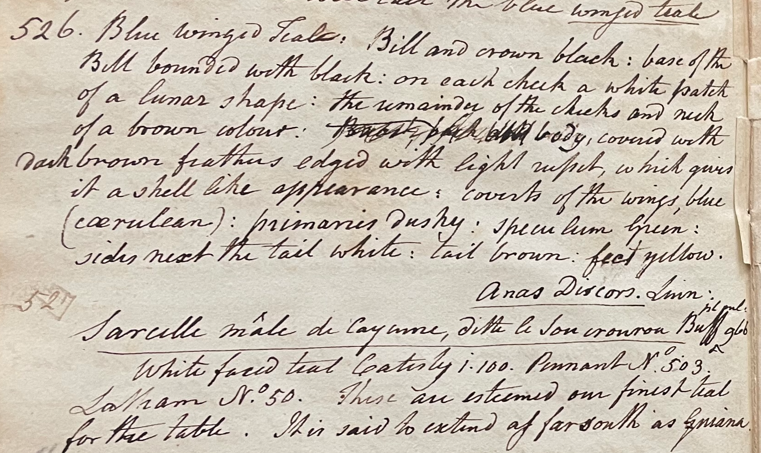 the blue winged teale
526. Blue winged Teale: Bill and crown black: base of the
Bill bounded with black: on each cheek a white patch
of a lunar shape: the remainder of the cheeks and neck
of a brown colour: body, covered with
dark brown feathers edged with light russet, which gives
it a shell like appearance: coverts of the wings, blue
(cœrulean): primaries dusky: speculum green:
sides next the tail white: tail brown: feet yellow.
Anas Discors. Linn:
527
Sarcelle mâle de Cayenne, ditte le Soucrourou Buff 966
pl. enl.
White faced teal Catesby 1.100. Pennant No. 503.
Latham No. 50. These are esteemed our finest teal
for the table. It is said to extend as far south as Guiana.